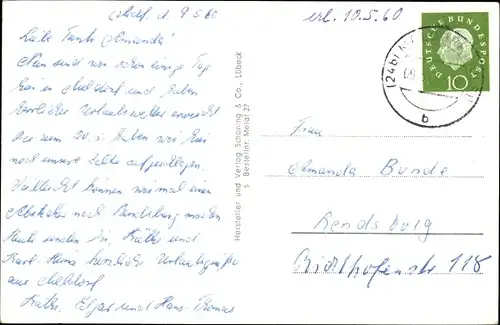 Meldorf, d. 9.5.60
Liebe Tante Amanda!
Nun sind wir schon einige Tage
hier in Meldorf und haben
herrliches Urlaubswetter erwischt
Bis zum 20.5. haben wir hier
noch unsere Zelte aufgeschlagen.
Vielleicht können wir mal einen
Abstecher nach Rendsburg machen
Heute senden Dir, Käthe und
Karl-Heinz herzliche Urlaubsgrüße
aus Meldorf
Käthe, Edgar und Hans-Thomas
Hersteller und Verlag Schöning & Co., Lübeck
S Bestellnr. Meldf 27
erl. 10.5.60
DEUTSCHE BUNDESPOST
10
(24b)
09
b
Frau
Amanda Bunde
Rendsburg
Richthofenstr 118